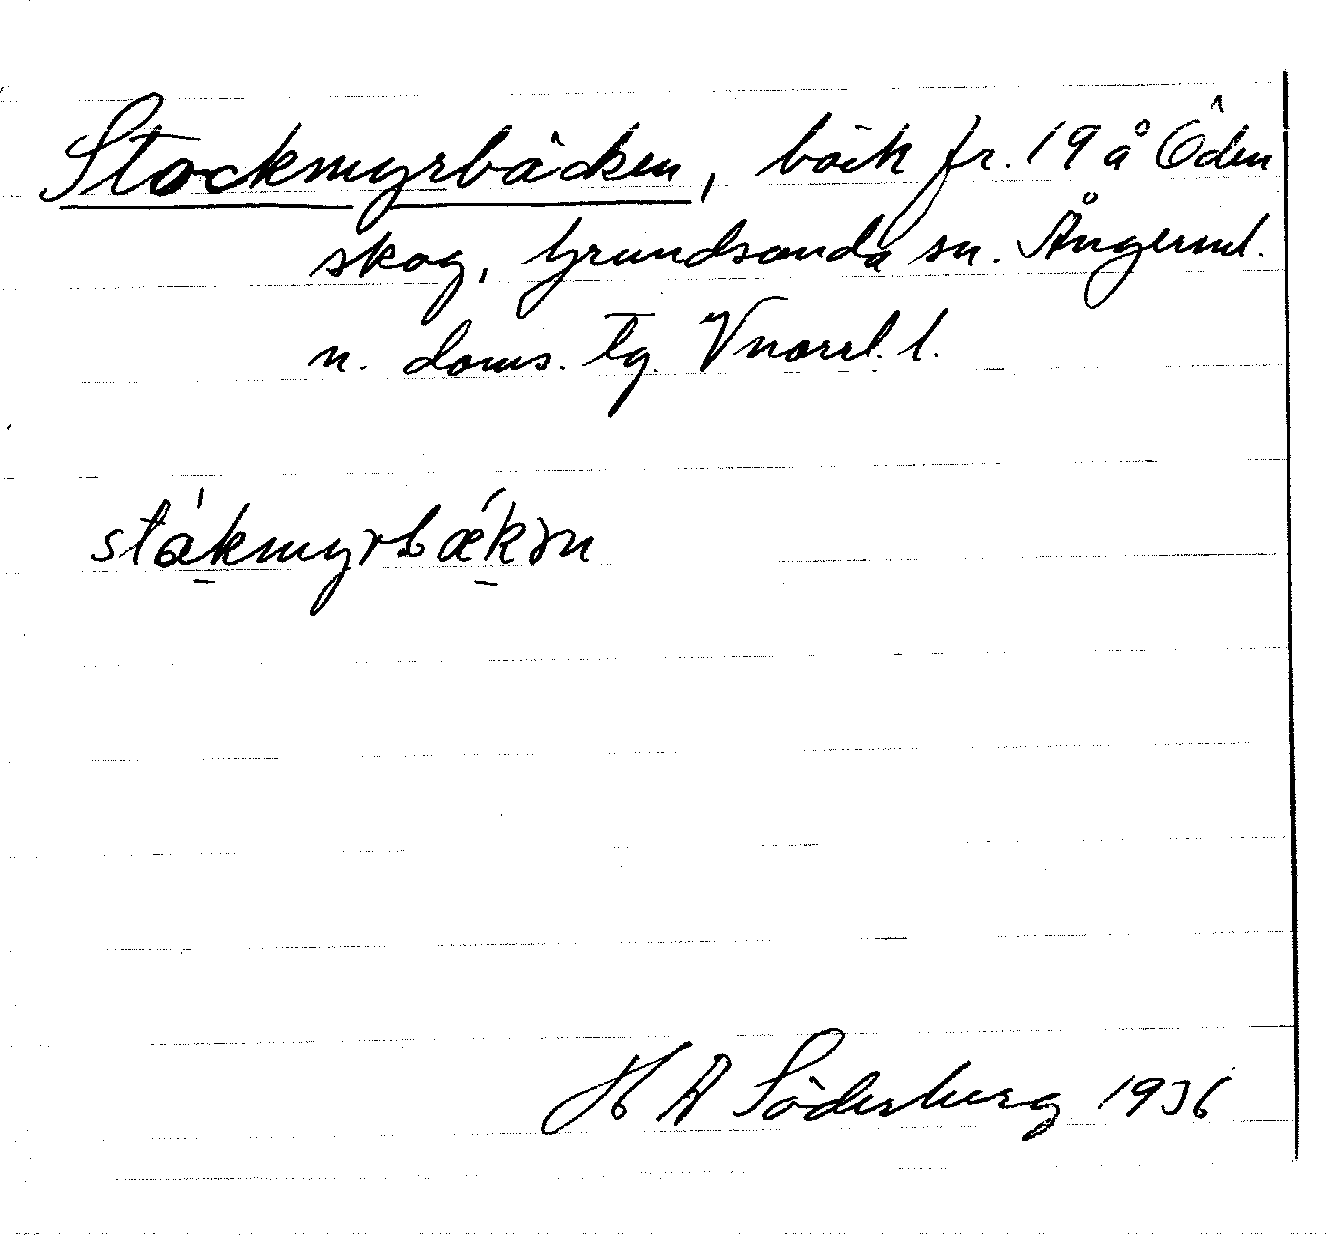 Stockmyrbäcken, bäck fr. 19 å Öden
skog, Grundsunda sn. Ångerml.
n. doms. tg. Vnorrl. l.
ståkmyrbækən
H A Söderberg 1936